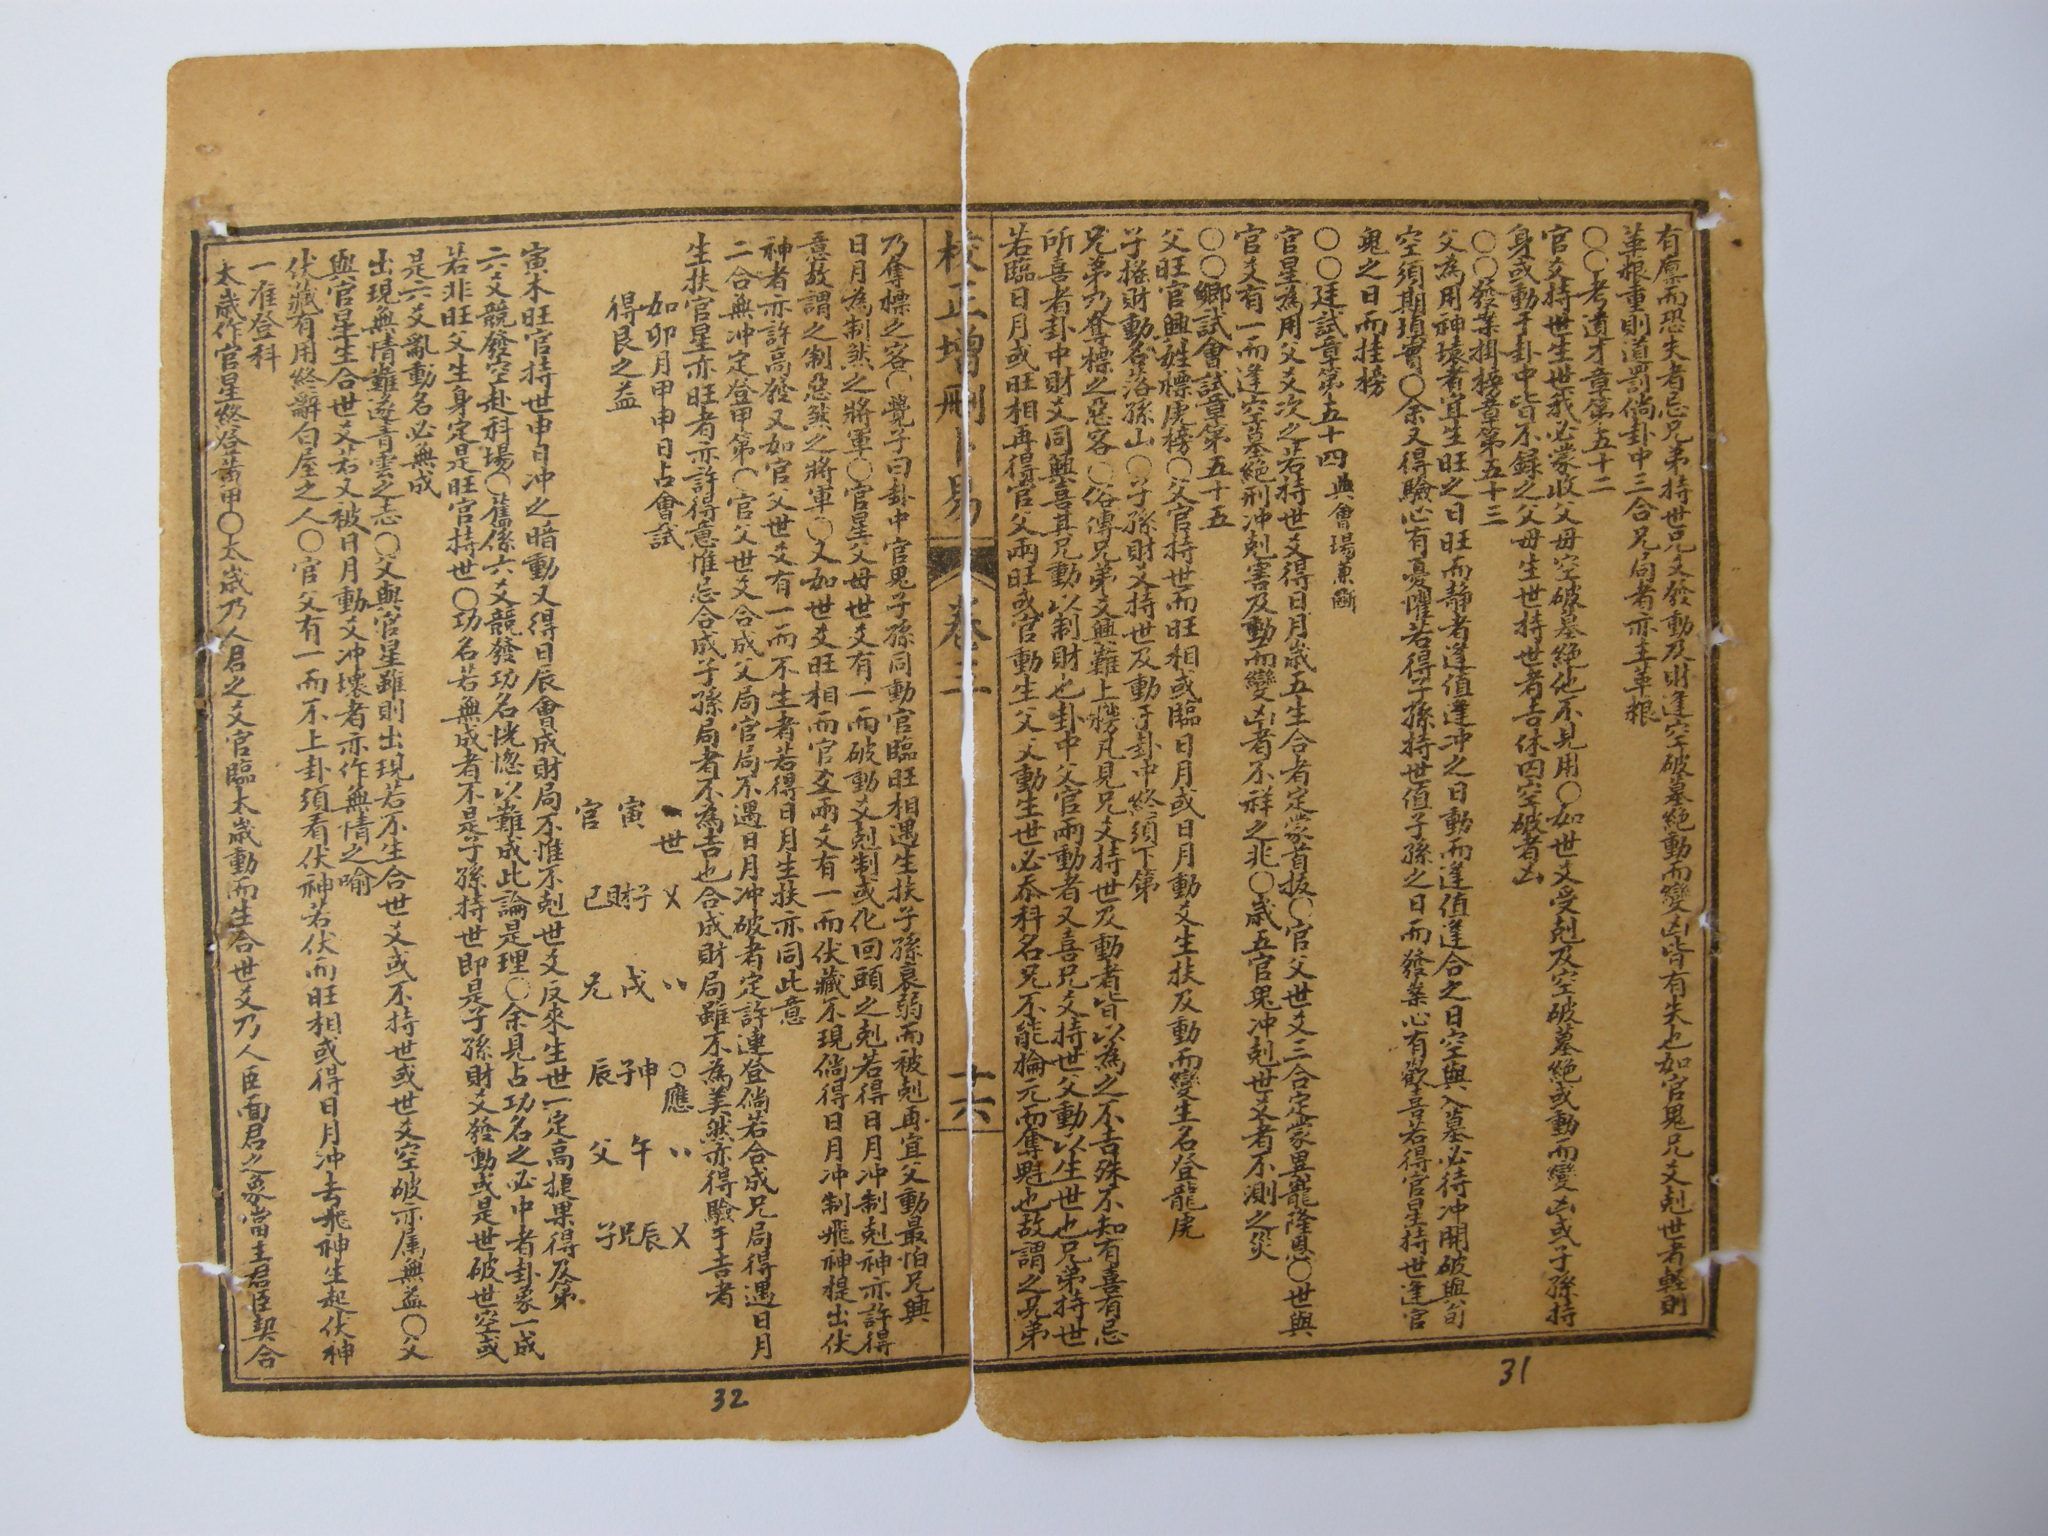 有廩而恐失者忌兄弟持世兄爻發動及財逢空破墓絕動而變凶皆有失也如官鬼兄爻剋世者輕則
革粮重則道罰倘卦中三合兄局者亦主革粮
○○考遺才章第五十二
官爻持世生世我必蒙收父母空破墓絕他不見用○如世爻受剋及空破墓絕或動而變凶或子孫持
身或動于卦中皆不錄之父母生世持世者吉休囚空破者凶
○○發案掛榜章第五十三
父為用神壞者宜生旺之日旺而靜者逢值逢冲之日動而逢值逢合之日空與入墓必待冲開破與旬
空須期填實○余又得驗心有憂懼若得子孫持世值子孫之日而發案心有歡喜若得官星持世逢官
鬼之日而挂榜
○○廷試章第五十四 與會場兼斷
官星為用父爻次之若持世爻得日月歲五生合者定蒙首拔○官父世爻三合定蒙異寵隆恩○世與
官爻有一而逢空墓絕刑冲剋害及動而變凶者不祥之兆○歲五官鬼冲剋世爻者不測之災
○○鄉試會試章第五十五
父旺官興姓標虎榜○父官持世而旺相或臨日月或日月動爻生扶及動而變生名登龍虎
子搖財動名落孫山○子孫財爻持世及動于卦中終須下第
兄弟乃奪標之惡客○俗傳兄弟爻興難上榜凡見兄爻持世及動者皆以為之不吉殊不知有喜有忌
所喜者卦中財爻同興喜其兄動以制財也卦中父官兩動者又喜兄爻持世父動以生世也兄弟持世
若臨日月或旺相再得官父兩旺或官動生父父動生世必忝科名兄不能掄元而奪魁也故謂之兄弟
校正增刪卜易 卷三 十六
乃奪標之客○覺子曰卦中官鬼子孫同動官臨旺相遇生扶子孫衰弱而被剋再宜父動最怕兄興
日月為制煞之將軍○官星父母世爻有一而破動爻剋制或化回頭之剋若得日月冲制剋神亦許得
意故謂之制惡煞之將軍○又如世爻旺相而官父兩爻有一而伏藏不現倘得日月冲制飛神提出伏
神者亦許高發又如官父世爻有一而不生者若得日月生扶亦同此意
二合無冲定登甲第○官父世爻合成父局官局不遇日月冲破者定許連登倘若合成兄局得遇日月
生扶官星亦旺者亦許得意惟忌合成子孫局者不為吉也合成財局雖不為美然亦得驗于吉者
如卯月甲申日占會試
得艮之益
世 寅 官
財子 巳
戌 兄
○應 子申 辰
午 父
兄辰 子
寅木旺官持世申日冲之暗動又得日辰會成財局不惟不剋世爻反來生世一定高捷果得及第
六爻競發空赴科場○舊係六爻競發功名恍惚以難成此論是理○余見占功名之必中者卦象一成
若非旺父生身定是旺官持世○功名若無成者不是子孫持世即是子孫財爻發動或是世破世空或
是六爻亂動名必無成
出現無情難遂青雲之志○父與官星雖則出現若不生合世爻或不持世或世爻空破亦屬無益○父
與官星生合世爻若又被日月動爻冲壞者亦作無情之喻
伏藏有用終辭白屋之人○官父有一而不上卦須看伏神若伏而旺相或得日月冲去飛神生起伏神
一准登科
太歲作官星終登黃甲○太歲乃人君之爻官臨太歲動而生合世爻乃人臣面君之象當主君臣契合
32
31